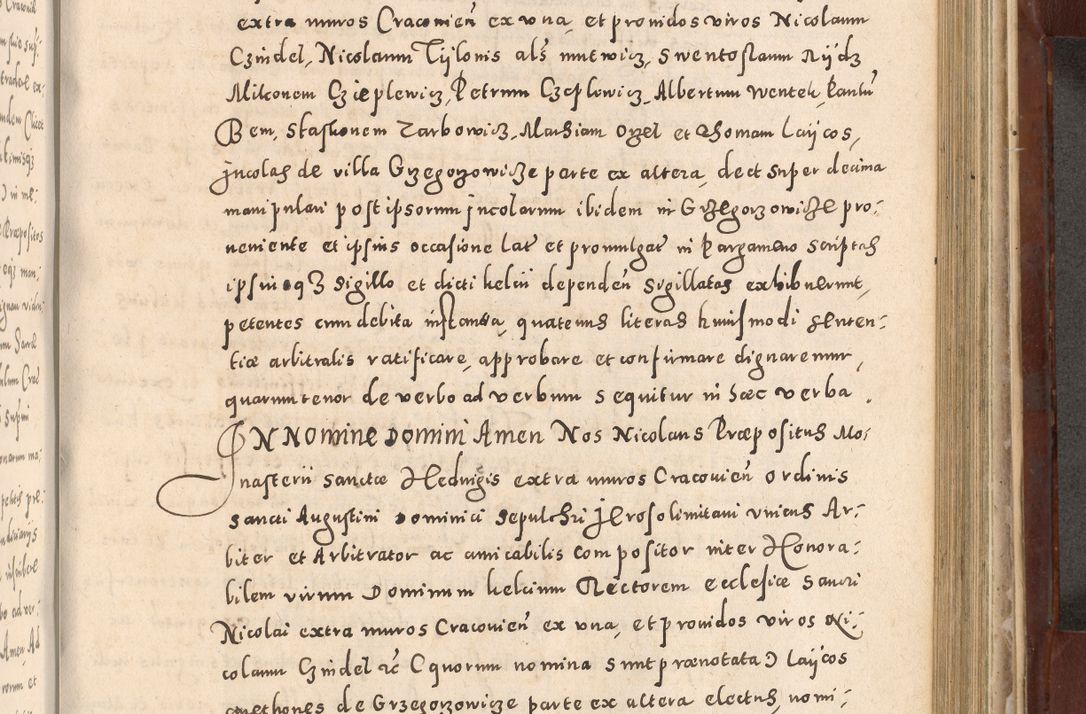 extra muros Cracovien̄ ex una, et providos viros Nicolaum
Czindel, Nicolaum Tÿlonis als̄ mutwicz, Swentoslaum Rÿdz
Milconem Czieplewicz, Petrum Czeplowicz, Albertum Wentek, Paulū
Bem, Staskonem Tarbowicz, Mathiam Orzel et Thomam Laÿcos,
Jncolas de villa Grzegorzowicze parte ex altera, de et super decima
manipulari post ipsorum jncolarum ibidem in Grzegorzowicze pro:
veniente et ipsius occasione lat̄ et promulgat̄ in Pargameno scriptas
ipsiusq3 sigillo et dicti kelcii dependen̄ sigillatas exhibuerunt,
petentes cum debita instantia, quatenus literas huiusmodi senten:
tiæ arbitralis ratificare, approbare et confirmare dignaremur,
quarum tenor de verbo ad verbum sequitur in hæc verba.
JN NOmine Domini Amen Nos Nicolaus Præpositus Mo:
nasterii sanctæ Hedvigis extra muros Cracovien̄ ordinis
sancti Augustini Dominici sepulchri Jerosolimitani unicus Ar:
biter et Arbitrator ac amicabilis compositor inter Honora:
bilem virum Dominum kelcium Rectorem ecclesiæ Sancti
Nicolai extra muros Cracovien̄ ex una, et providos viros Ni:
colaum Czindel etc̄ C quorum nomina sunt prænotata Ɔ Laÿcos
cmethones de Grzegorzowicze parte ex altera electus, nomi: